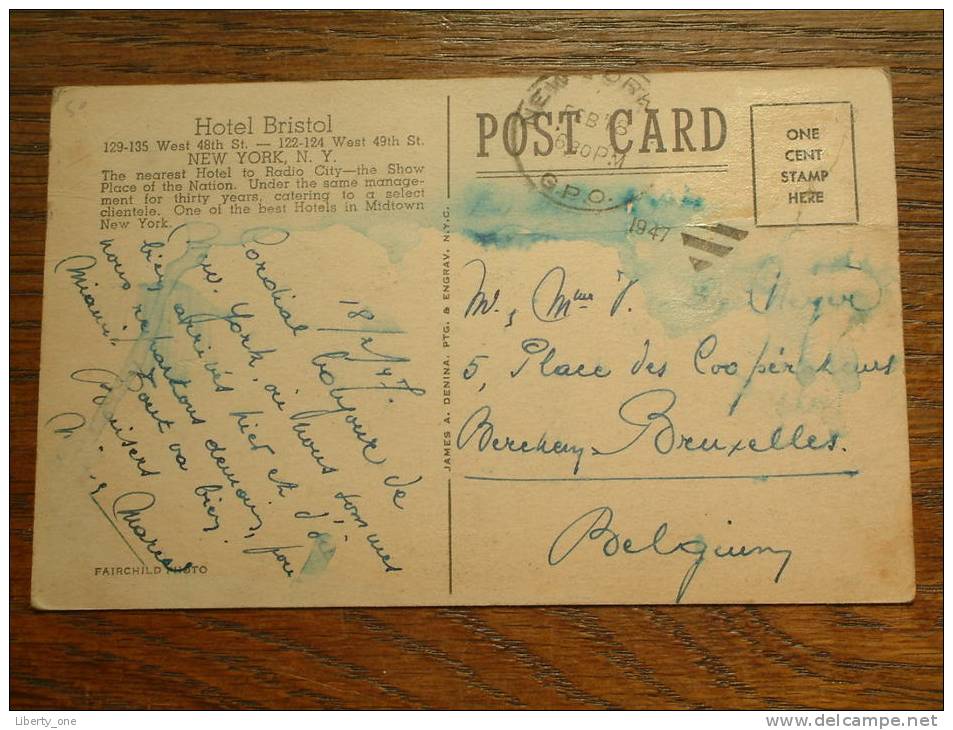 Hotel Bristol
129-135 West 48th St. — 122-124 West 49th St.
NEW YORK, N. Y.
The nearest Hotel to Radio City—the Show
Place of the Nation. Under the same manage-
ment for thirty years, catering to a select
clientele. One of the best Hotels in Midtown
New York.
18/2/47.
Cordial bonjour de
New. York. où nous sommes
bien arrivés hier et d'où
nous repartons demain, pour
Miami. Tout va bien.
Baisers
Marcel
FAIRCHILD PHOTO
JAMES A. DENINA, PTG. & ENGRAV. N.Y.C.
POST CARD
NEW YORK
FEB 18
6 30 P.M
G.P.O.
1947
ONE
CENT
STAMP
HERE
M., Mme J. Meyer
5, Place des Coopérateurs
Berchem - Bruxelles.
Belgium
Liberty_one
delcampe.net